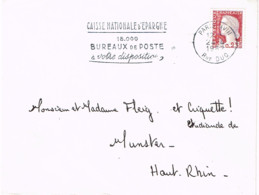 CAISSE NATIONALE D'EPARGNE
18.000
BUREAUX DE POSTE
à votre disposition
0,25
Monsieur et Madame Fleig, et Criquette!
étudiante de
Munster
Haut-Rhin